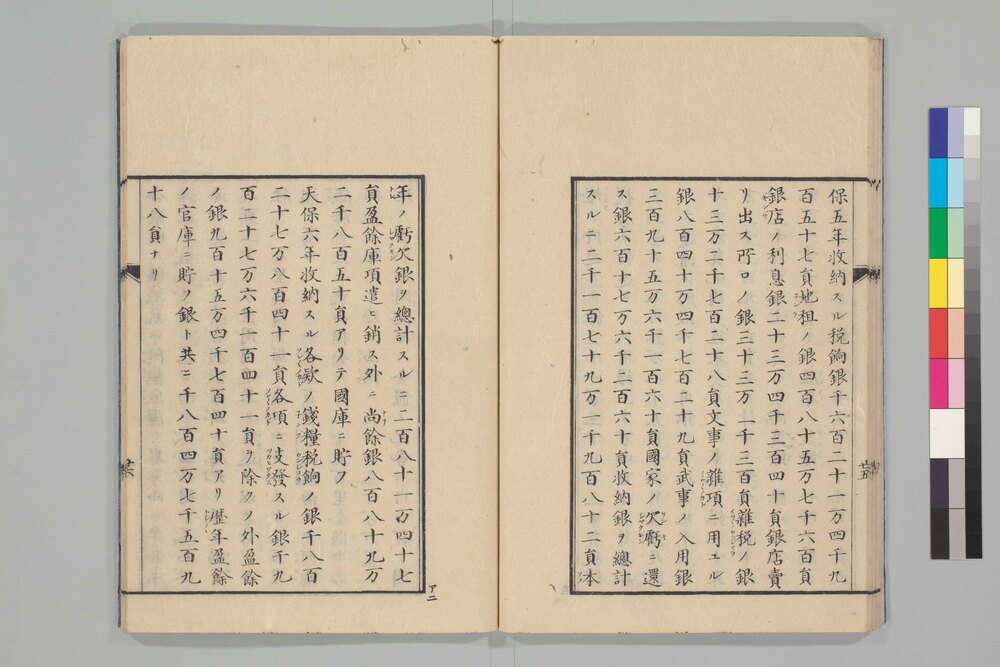 保五年收納スル税餉銀千六百二十一万四千九
百五十七員地租ノ銀四百八十五万七千六百員
銀店ノ利息銀二十三万四千三百四十員銀店賣
リ出ス所ロノ銀三十三万一千三百員雜税ノ銀
十三万二千七百二十八員文事ノ雜項ニ用エル
銀八百四十万四千七百二十九員武事ノ入用銀
三百九十五万六千一百六十員國家ノ欠虧ニ還
ス銀六百十七万六千二百六十員收納銀ヲ總計
スルニ二千一百七十九万二千九百八十二員本
年ノ虧欠銀ヲ總計スルニ二百八十一万四十七
員盈餘庫項遣ヒ銷ス外ニ尚餘銀八百八十九万
二千八百五十員アリテ國庫ニ貯フ
天保六年收納スル各欵ノ錢糧税餉ノ銀千八百
二十七万八百四十一員各項ニ支發スル銀千九
百二十七万六千一百四十一員ヲ除クノ外盈餘
ノ銀九百十五万四千七百四十員アリ歴年盈餘
ノ官庫ニ貯フ銀ト共ニ千八百四万七千五百九
十八員ナリ